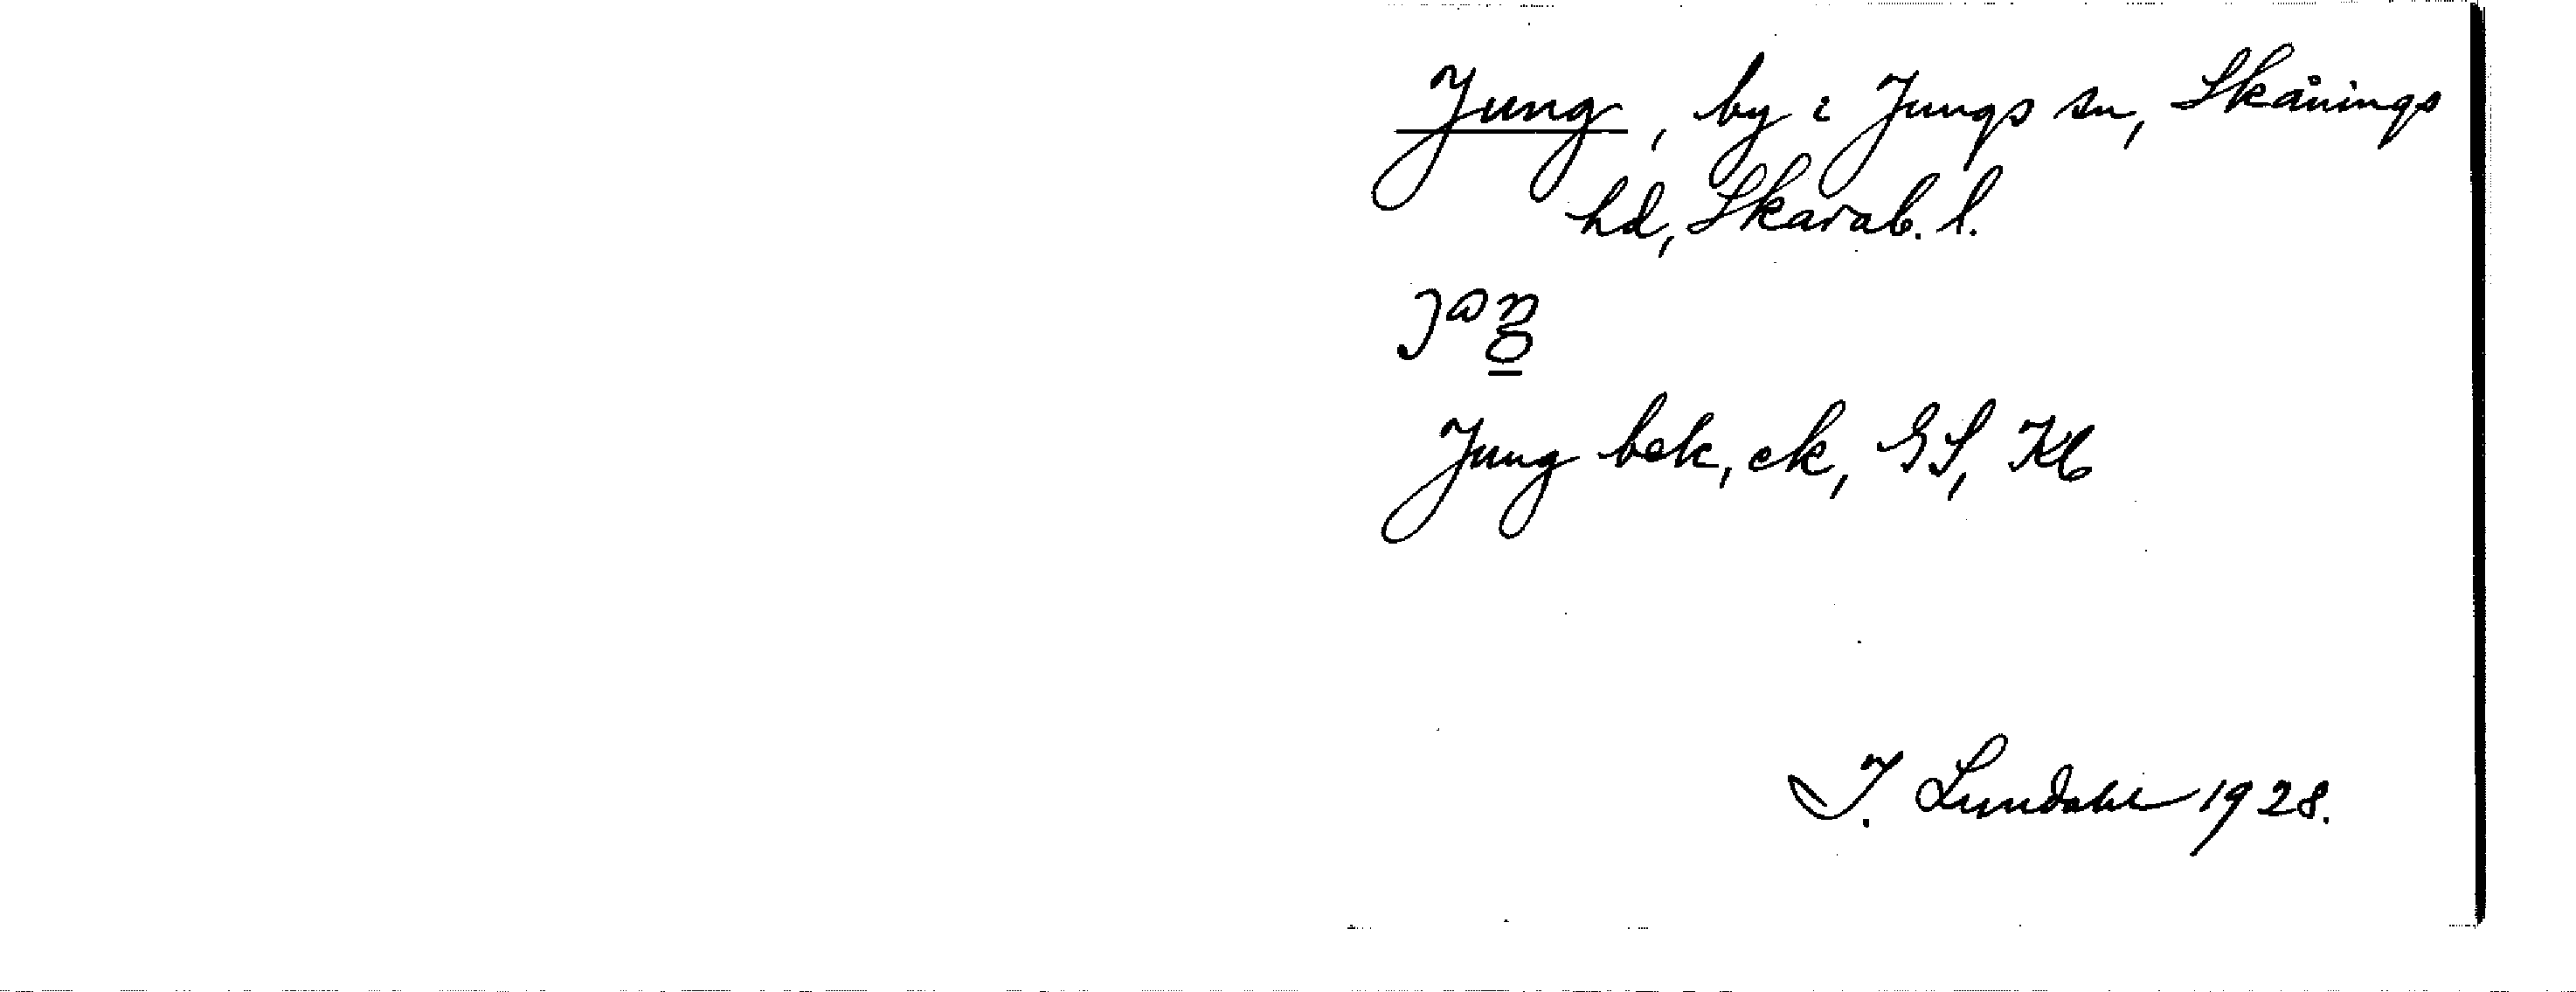 Jung, by i Jungs sn, Skånings
hd, Skarab. l.
Jung bek, ek, GS, Kb
I. Lundahl 1928.